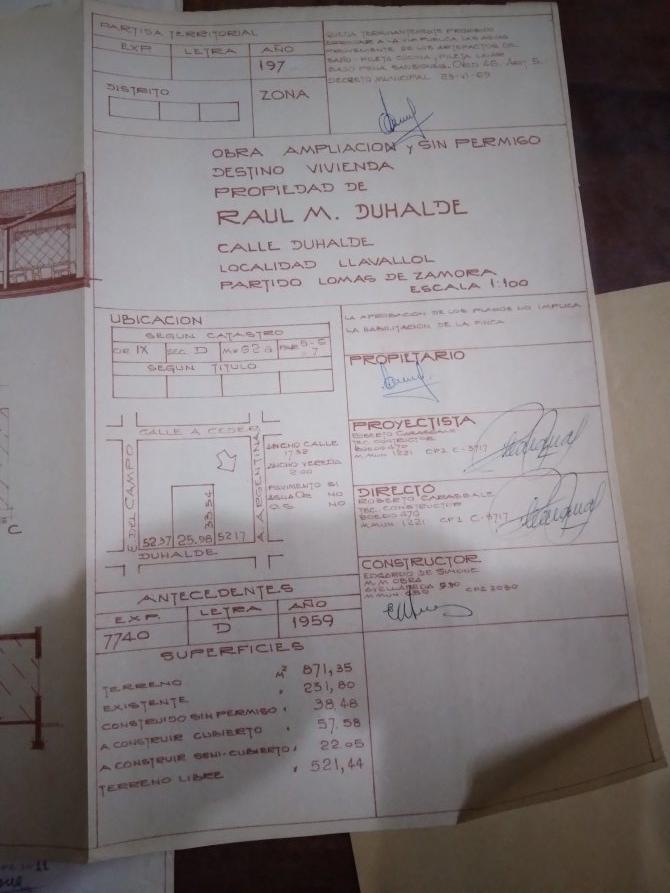 PARTIDA TERRITORIAL
EXP. LETRA AÑO
197
DISTRITO
ZONA
QUEDA TERMINANTEMENTE PROHIBIDO
ARROJAR A LA VIA PUBLICA LAS AGUAS
PROVENIENTE DE LOS ARTEFACTOS DE
BAÑO-PILETA COCINA, PILETA LAVAR
BAJO PENA SANCIONES. ORD 46. ART 5.
DECRETO MUNICIPAL
OBRA AMPLIACION y SIN PERMISO
DESTINO VIVIENDA
PROPIEDAD DE
RAUL M. DUHALDE
CALLE DUHALDE
LOCALIDAD LLAVALLOL
PARTIDO LOMAS DE ZAMORA
ESCALA 1:100
UBICACION
SEGUN CATASTRO
CIR IX SEC. D
SEGUN TITULO
LA APROBACION DE LOS PLANOS NO IMPLICA
LA HABILITACION DE LA FINCA
PROPIETARIO
CALLE A CEDER
E. DEL CAMPO
A. ARGENTINA
33.54
52.37 25.98 52.17
DUHALDE
ANCHO CALLE
17.32
ANCHO VEREDA
2.00
PAVIMENTO SI
AGUA NO
O.S. NO
PROYECTISTA
ROBERTO
TEC. CONSTRUCTOR
BOEDO 470
M.MUN 1221 CP1 C-3717
DIRECTO
ROBERTO
TEC. CONSTRUCTOR
BOEDO 470
M.MUN 1221 CP1 C-3717
CONSTRUCTOR
EDGARDO DE SIMONE
M.M OBRA
AVELLANEDA
M.MUN
ANTECEDENTES
EXP. LETRA AÑO
7740 D 1959
SUPERFICIES
TERRENO M² 871,35
EXISTENTE " 231,80
CONSTRUIDO SIN PERMISO " 38.48
A CONSTRUIR CUBIERTO " 57.58
A CONSTRUIR SEMI-CUBIERTO " 22.05
TERRENO LIBRE " 521,44
C